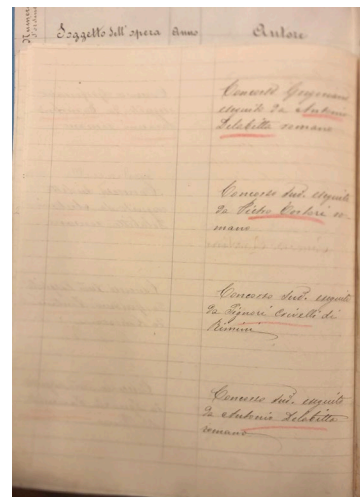 Numero d'ordine
Soggetto dell'opera Anno Autore
Concorso Gregoriano
eseguito da Antonio
Delabitta romano
Concorso sud. eseguito
da Pietro Tortori ro-
mano
Concorso sud. eseguito
da
Rimini
Concorso sud. eseguito
da Antonio Delabitta
romano